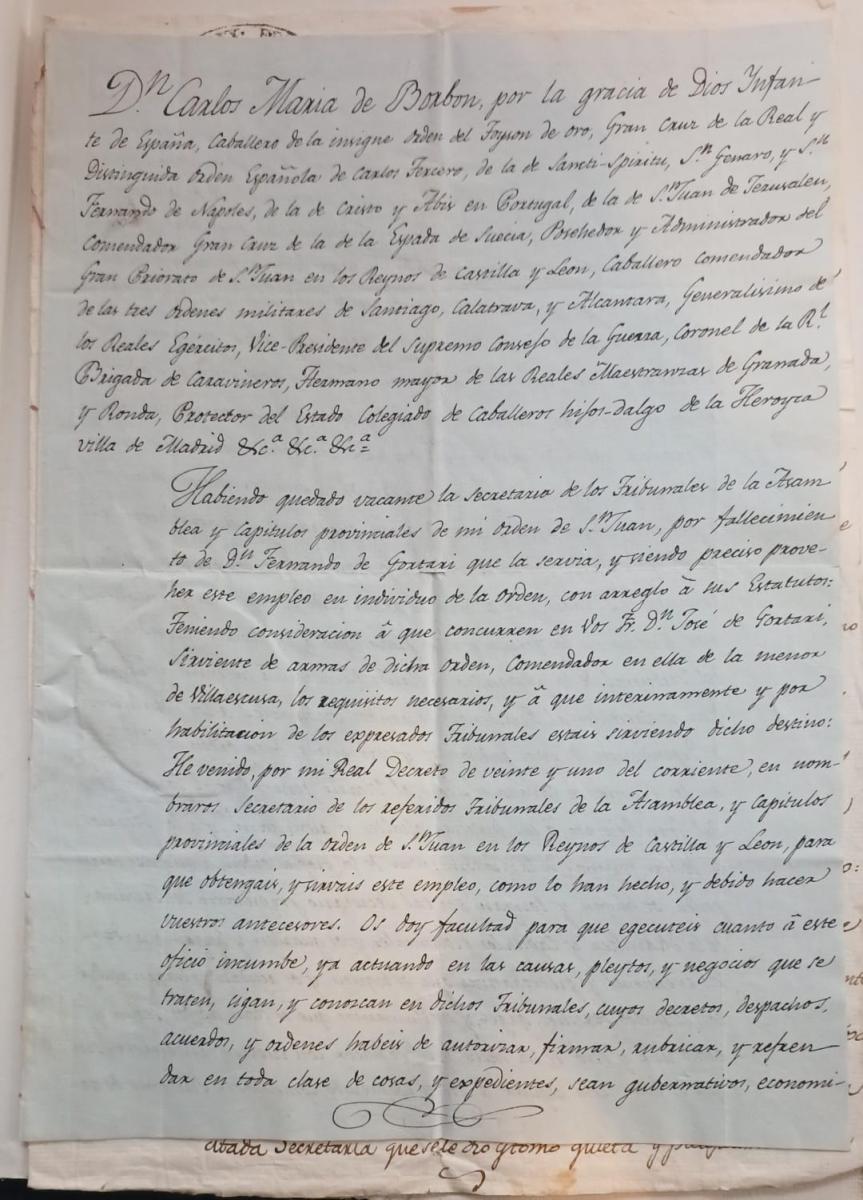 D.ⁿ Carlos Maria de Borbon, por la gracia de Dios Ynfan-
te de España, Caballero de la insigne orden del Toyson de oro, Gran Cruz de la Real y
Distinguida orden Española de Carlos Tercero, de la de Sancti-Spiritu, S.ⁿ Genaro, y S.ⁿ
Fernando de Napoles, de la de Cristo y Abis en Portugal, de la de S.ⁿ Juan de Jerusalen,
Comendador Gran Cruz de la de la Espada de Suecia, Posehedor y Administrador del
Gran Priorato de S.ⁿ Juan en los Reynos de Castilla y Leon, Caballero comendador
de las tres ordenes militares de Santiago, Calatrava, y Alcantara, Generalisimo de
los Reales Egércitos, Vice-Presidente del Supremo Consejo de la Guerra, Coronel de la R.ˡ
Brigada de Caravineros, Hermano mayor de las Reales Maestranzas de Granada,
y Ronda, Protector del Estado Colegiado de Caballeros hijos-dalgo de la Heroyca
villa de Madrid &c.ª &c.ª &c.ª
Habiendo quedado vacante la secretaria de los Tribunales de la Asam-
blea y Capitulos provinciales de mi orden de S.ⁿ Juan, por fallecimien
to de D.ⁿ Fernando de Gortari que la servia, y siendo preciso prove-
her este empleo en individuo de la orden, con arreglo á sus Estatutos:
Teniendo consideracion á que concurren en Vos Fr. D.ⁿ José de Gortari,
sirviente de armas de dicha orden, Comendador en ella de la menor
de Villaescusa, los requisitos necesarios, y á que interinamente y por
habilitacion de los expresados Tribunales estais sirviendo dicho destino:
He venido, por mi Real Decreto de veinte y uno del corriente, en nom-
braros Secretario de los referidos Tribunales de la Asamblea, y Capitulos
provinciales de la orden de S.ⁿ Juan en los Reynos de Castilla y Leon, para
que obtengais, y sirvais este empleo, como lo han hecho, y debido hacer
vuestros antecesores. Os doy facultad para que egecuteis cuanto á este
oficio incumbe, ya actuando en las causas, pleytos, y negocios que se
traten, sigan, y conoscan en dichos Tribunales, cuyos decretos, despachos,
acuerdos, y ordenes habeis de autorizar, firmar, rubricar, y refren
dar en toda clase de cosas, y expedientes, sean gubernativos, economi-
citada Secretaria que se le dio y tomo quieta y